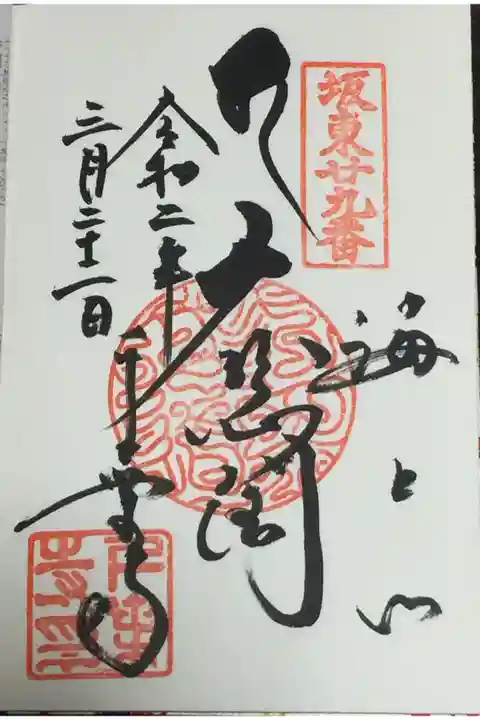 坂東廿九番
海上山
大悲閣
令和二年
三月二十一日
千葉寺